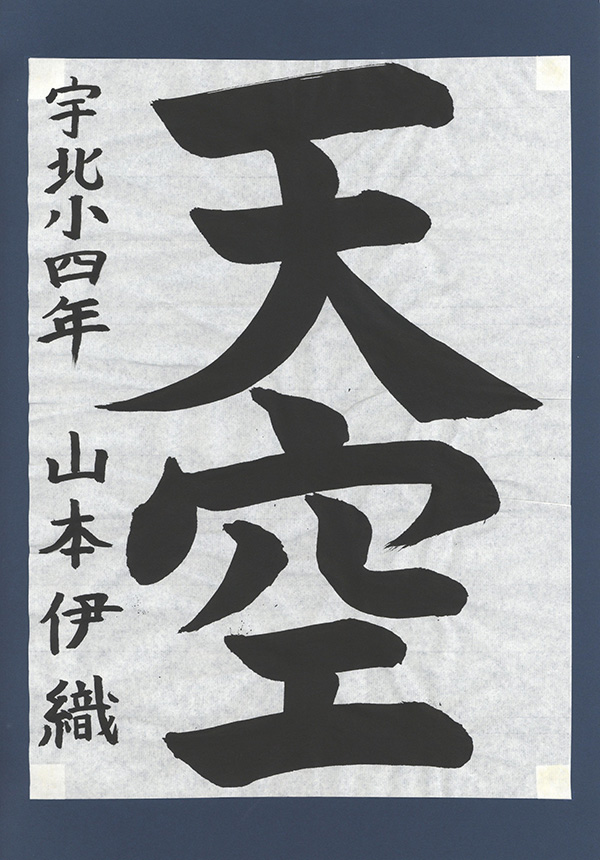 天空
宇北小四年 山本伊織